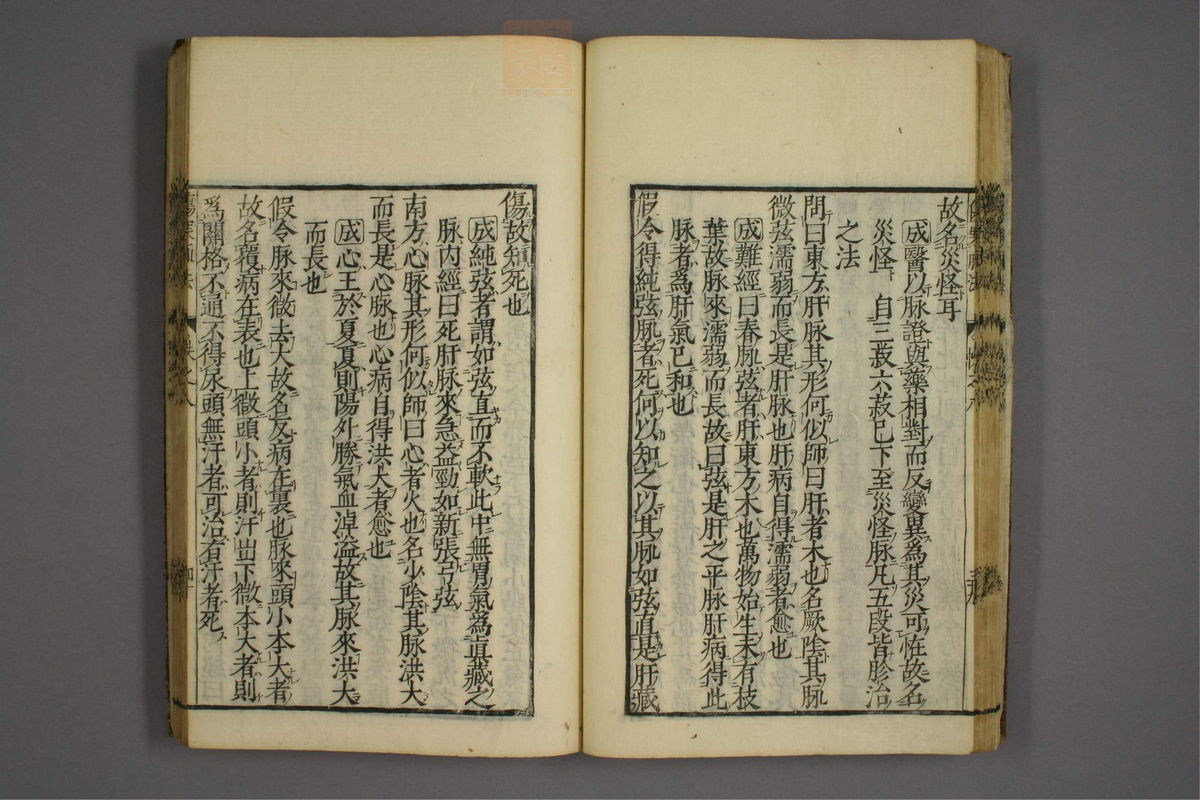 故名災怪耳
成醫以脉證與藥相對而反變異為其災可怪故名
災怪 自三菽六菽已下至災怪脉凡五段皆診治
之法
問曰東方肝脉其形何似師曰肝者木也名厥陰其脉
微弦濡弱而長是肝脉也肝病自得濡弱者愈也
成難經曰春脉弦者肝東方木也萬物始生未有枝
葉故脉來濡弱而長故曰弦是肝之平脉肝病得此
脉者為肝氣已和也
假令得純弦脉者死何以知之以其脉如弦直是肝藏
傷故知死也
成純弦者謂如弦直而不軟此中無胃氣為真藏之
脉内經曰死肝脉來急益勁如新張弓弦
南方心脉其形何似師曰心者火也名少陰其脉洪大
而長是心脉也心病自得洪大者愈也
成心王於夏夏則陽外勝氣血淖溢故其脉來洪大
而長也
假令脉來微去大故名反病在裏也脉來頭小本大者
故名覆病在表也上微頭小者則汗出下微本大者則
為關格不通不得尿頭無汗者可治有汗者死